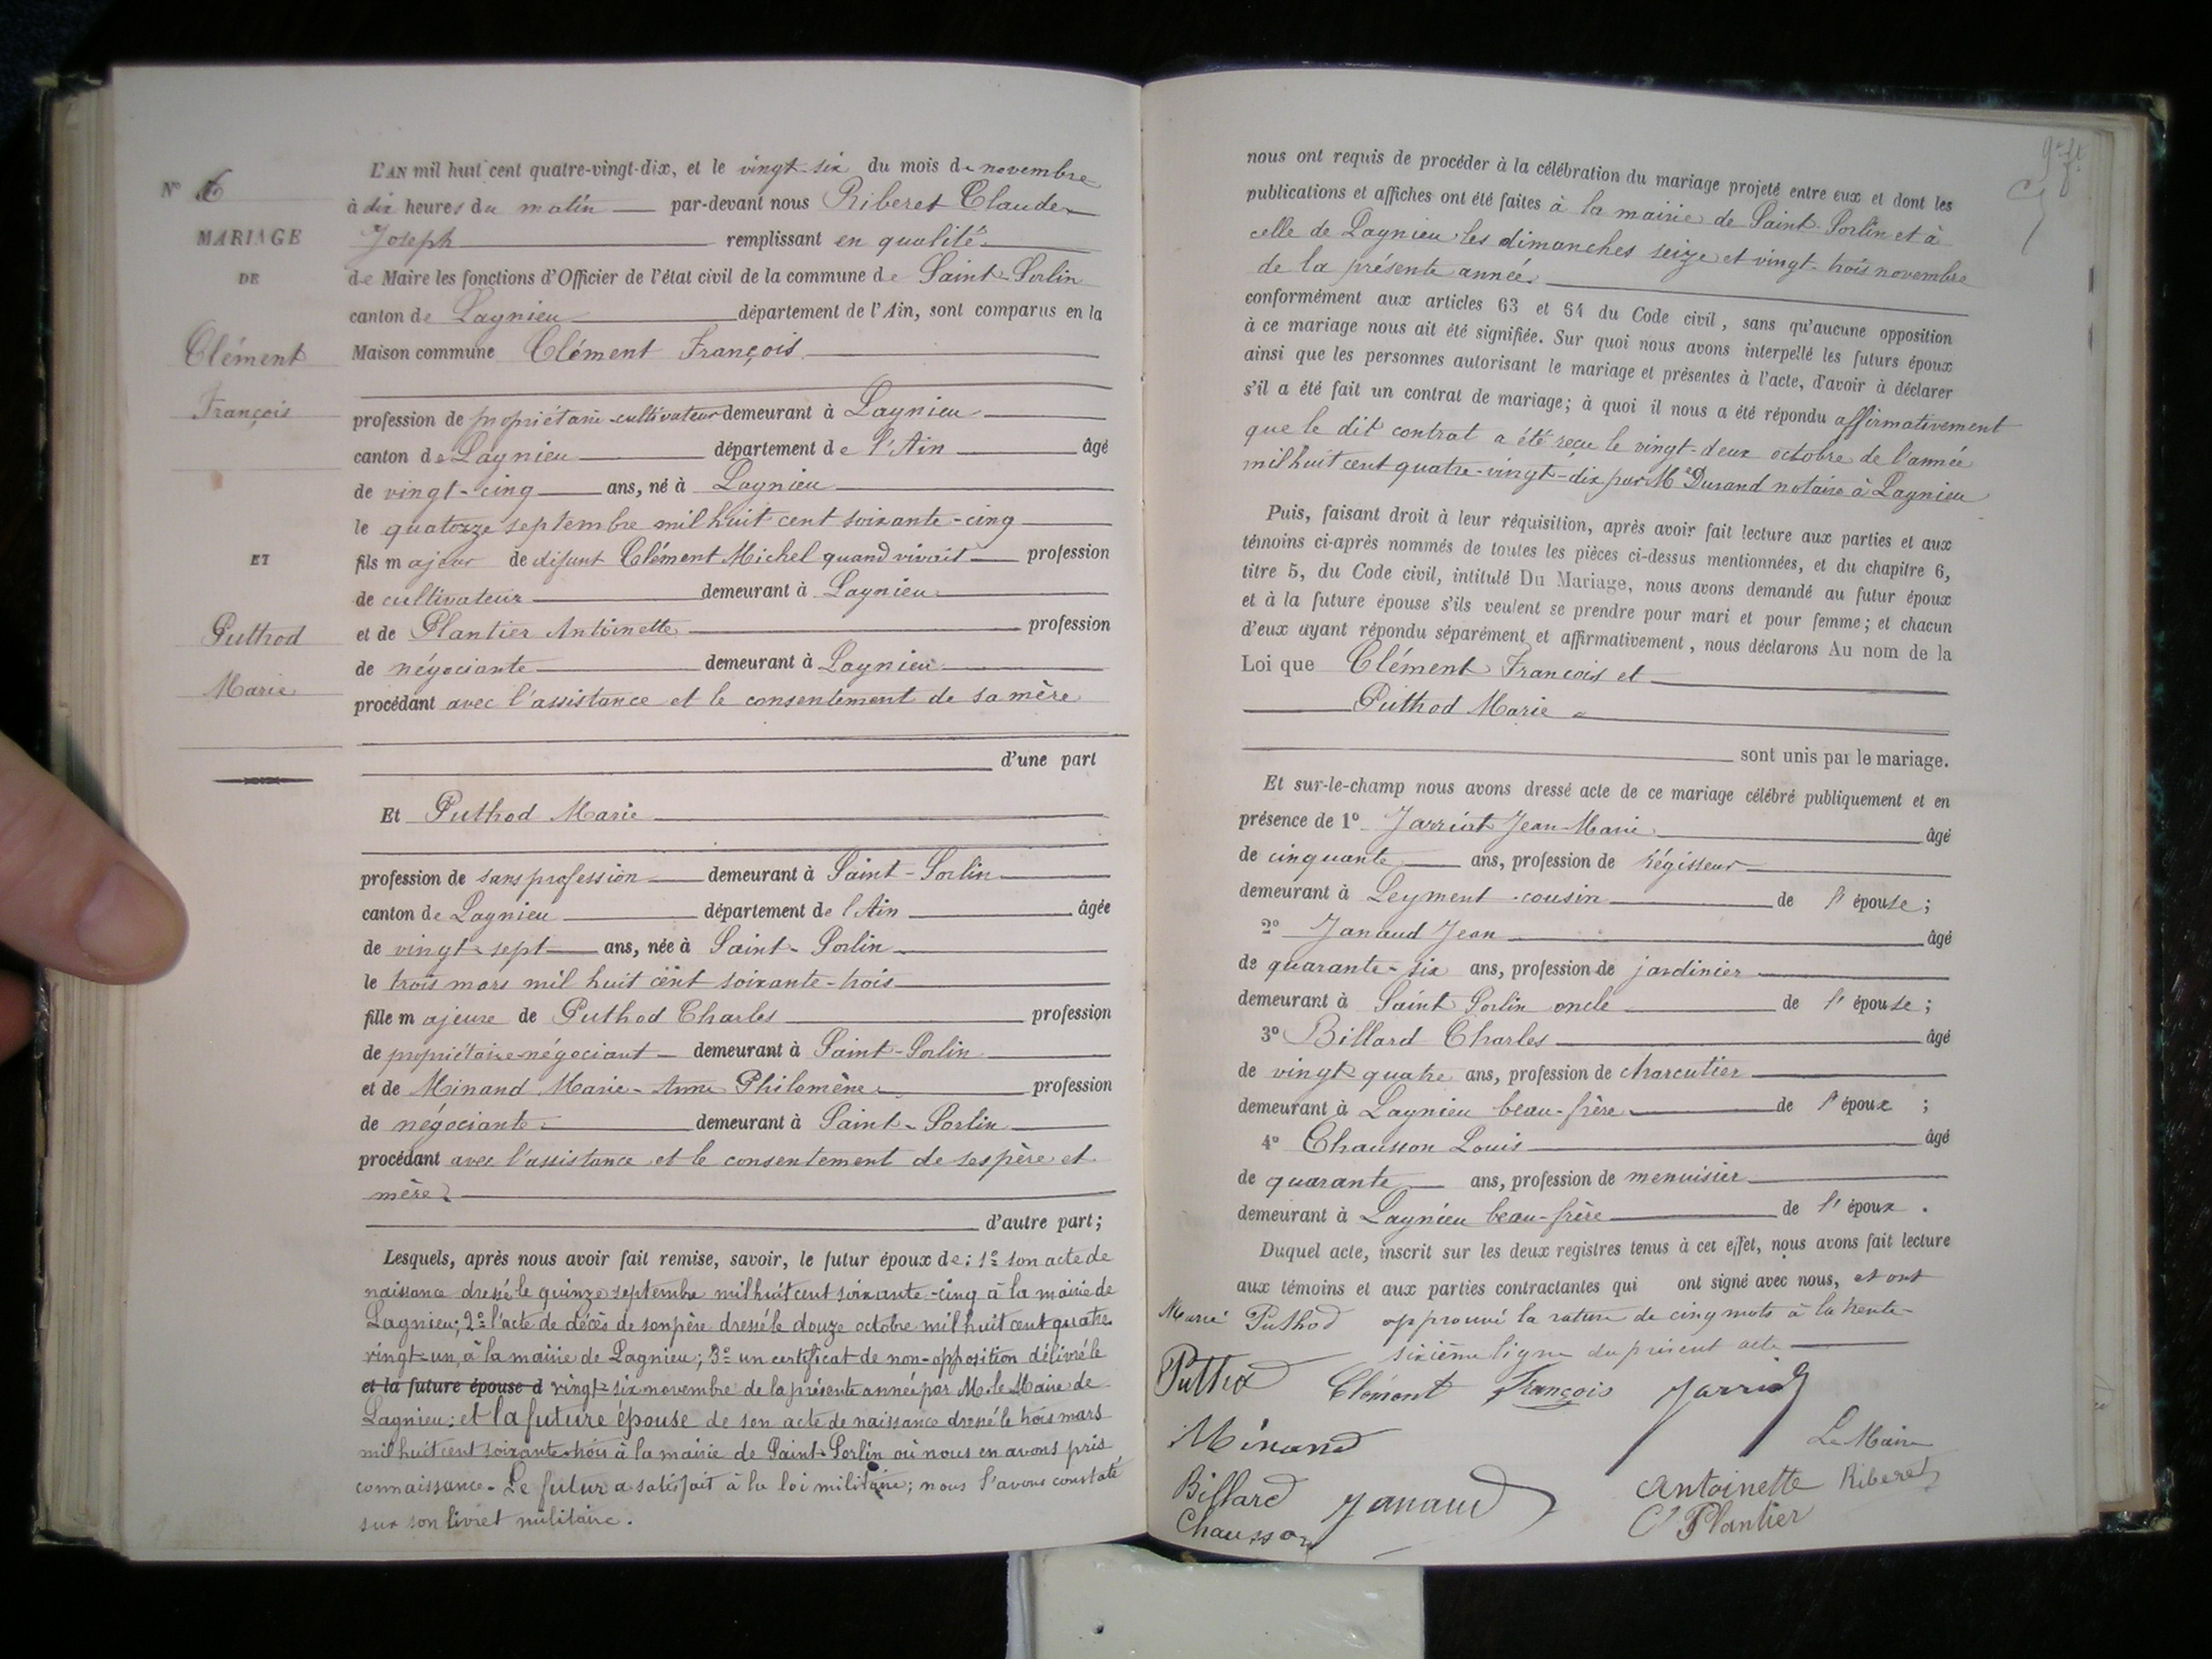 N° 6
MARIAGE
DE
Clément
François
ET
Puthod
Marie
L'AN mil huit cent quatre-vingt-dix, et le vingt-six du mois de novembre
à dix heures du matin par-devant nous Riberet Claude
Joseph remplissant en qualité
de Maire les fonctions d'Officier de l'état civil de la commune de Saint-Sorlin
canton de Lagnieu département de l'Ain, sont comparus en la
Maison commune Clément François
profession de propriétaire-cultivateur demeurant à Lagnieu
canton de Lagnieu département de l'Ain âgé
de vingt-cinq ans, né à Lagnieu
le quatorze septembre mil huit cent soixante-cinq
fils majeur de défunt Clément Michel quand vivait profession
de cultivateur demeurant à Lagnieu
et de Plantier Antoinette profession
de négociante demeurant à Lagnieu
procédant avec l'assistance et le consentement de sa mère
d'une part
Et Puthod Marie
profession de sans profession demeurant à Saint-Sorlin
canton de Lagnieu département de l'Ain âgée
de vingt-sept ans, née à Saint-Sorlin
le trois mars mil huit cent soixante-trois
fille majeure de Puthod Charles profession
de propriétaire-négociant demeurant à Saint-Sorlin
et de Minand Marie-Anne Philomène profession
de négociante demeurant à Saint-Sorlin
procédant avec l'assistance et le consentement de ses père et
mère
d'autre part;
Lesquels, après nous avoir fait remise, savoir, le futur époux de: 1° son acte de
naissance dressé le quinze septembre mil huit cent soixante-cinq à la mairie de
Lagnieu; 2° l'acte de décès de son père dressé le douze octobre mil huit cent quatre
vingt-un, à la mairie de Lagnieu; 3° un certificat de non-opposition délivré le
et la future épouse d vingt-six novembre de la présente année par M. le Maire de
Lagnieu; et la future épouse de son acte de naissance dressé le trois mars
mil huit cent soixante-trois à la mairie de Saint-Sorlin où nous en avons pris
connaissance. Le futur a satisfait à la loi militaire; nous l'avons constaté
sur son livret militaire.
nous ont requis de procéder à la célébration du mariage projeté entre eux et dont les
publications et affiches ont été faites à la mairie de Saint-Sorlin et à
celle de Lagnieu les dimanches seize et vingt-trois novembre
de la présente année
conformément aux articles 63 et 64 du Code civil, sans qu'aucune opposition
à ce mariage nous ait été signifiée. Sur quoi nous avons interpellé les futurs époux
ainsi que les personnes autorisant le mariage et présentes à l'acte, d'avoir à déclarer
s'il a été fait un contrat de mariage; à quoi il nous a été répondu affirmativement
que le dit contrat a été reçu le vingt-deux octobre de l'année
mil huit cent quatre-vingt-dix par Me Durand notaire à Lagnieu
Puis, faisant droit à leur réquisition, après avoir fait lecture aux parties et aux
témoins ci-après nommés de toutes les pièces ci-dessus mentionnées, et du chapitre 6,
titre 5, du Code civil, intitulé Du Mariage, nous avons demandé au futur époux
et à la future épouse s'ils veulent se prendre pour mari et pour femme; et chacun
d'eux ayant répondu séparément et affirmativement, nous déclarons Au nom de la
Loi que Clément François et
Puthod Marie
sont unis par le mariage.
Et sur-le-champ nous avons dressé acte de ce mariage célébré publiquement et en
présence de 1° Jarriat Jean-Marie âgé
de cinquante ans, profession de Régisseur
demeurant à Leyment cousin de l'épouse;
2° Janaud Jean âgé
de quarante-six ans, profession de jardinier
demeurant à Saint Sorlin oncle de l'épouse;
3° Billard Charles âgé
de vingt-quatre ans, profession de charcutier
demeurant à Lagnieu beau-frère de l'époux ;
4° Chausson Louis âgé
de quarante ans, profession de menuisier
demeurant à Lagnieu beau-frère de l'époux .
Duquel acte, inscrit sur les deux registres tenus à cet effet, nous avons fait lecture
aux témoins et aux parties contractantes qui ont signé avec nous, et ont
Marie Puthod approuvé la rature de cinq mots à la trente-
sixième ligne du présent acte
Puthod Clément François Jarriat
Minand Le Maire
Billard Janaud Antoinette Riberet
Chausson Ct Plantier